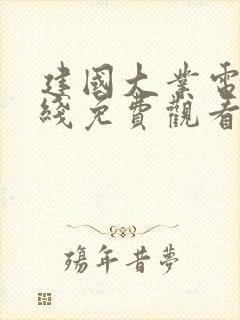 建國大業電
綫免費觀看
殤年昔夢